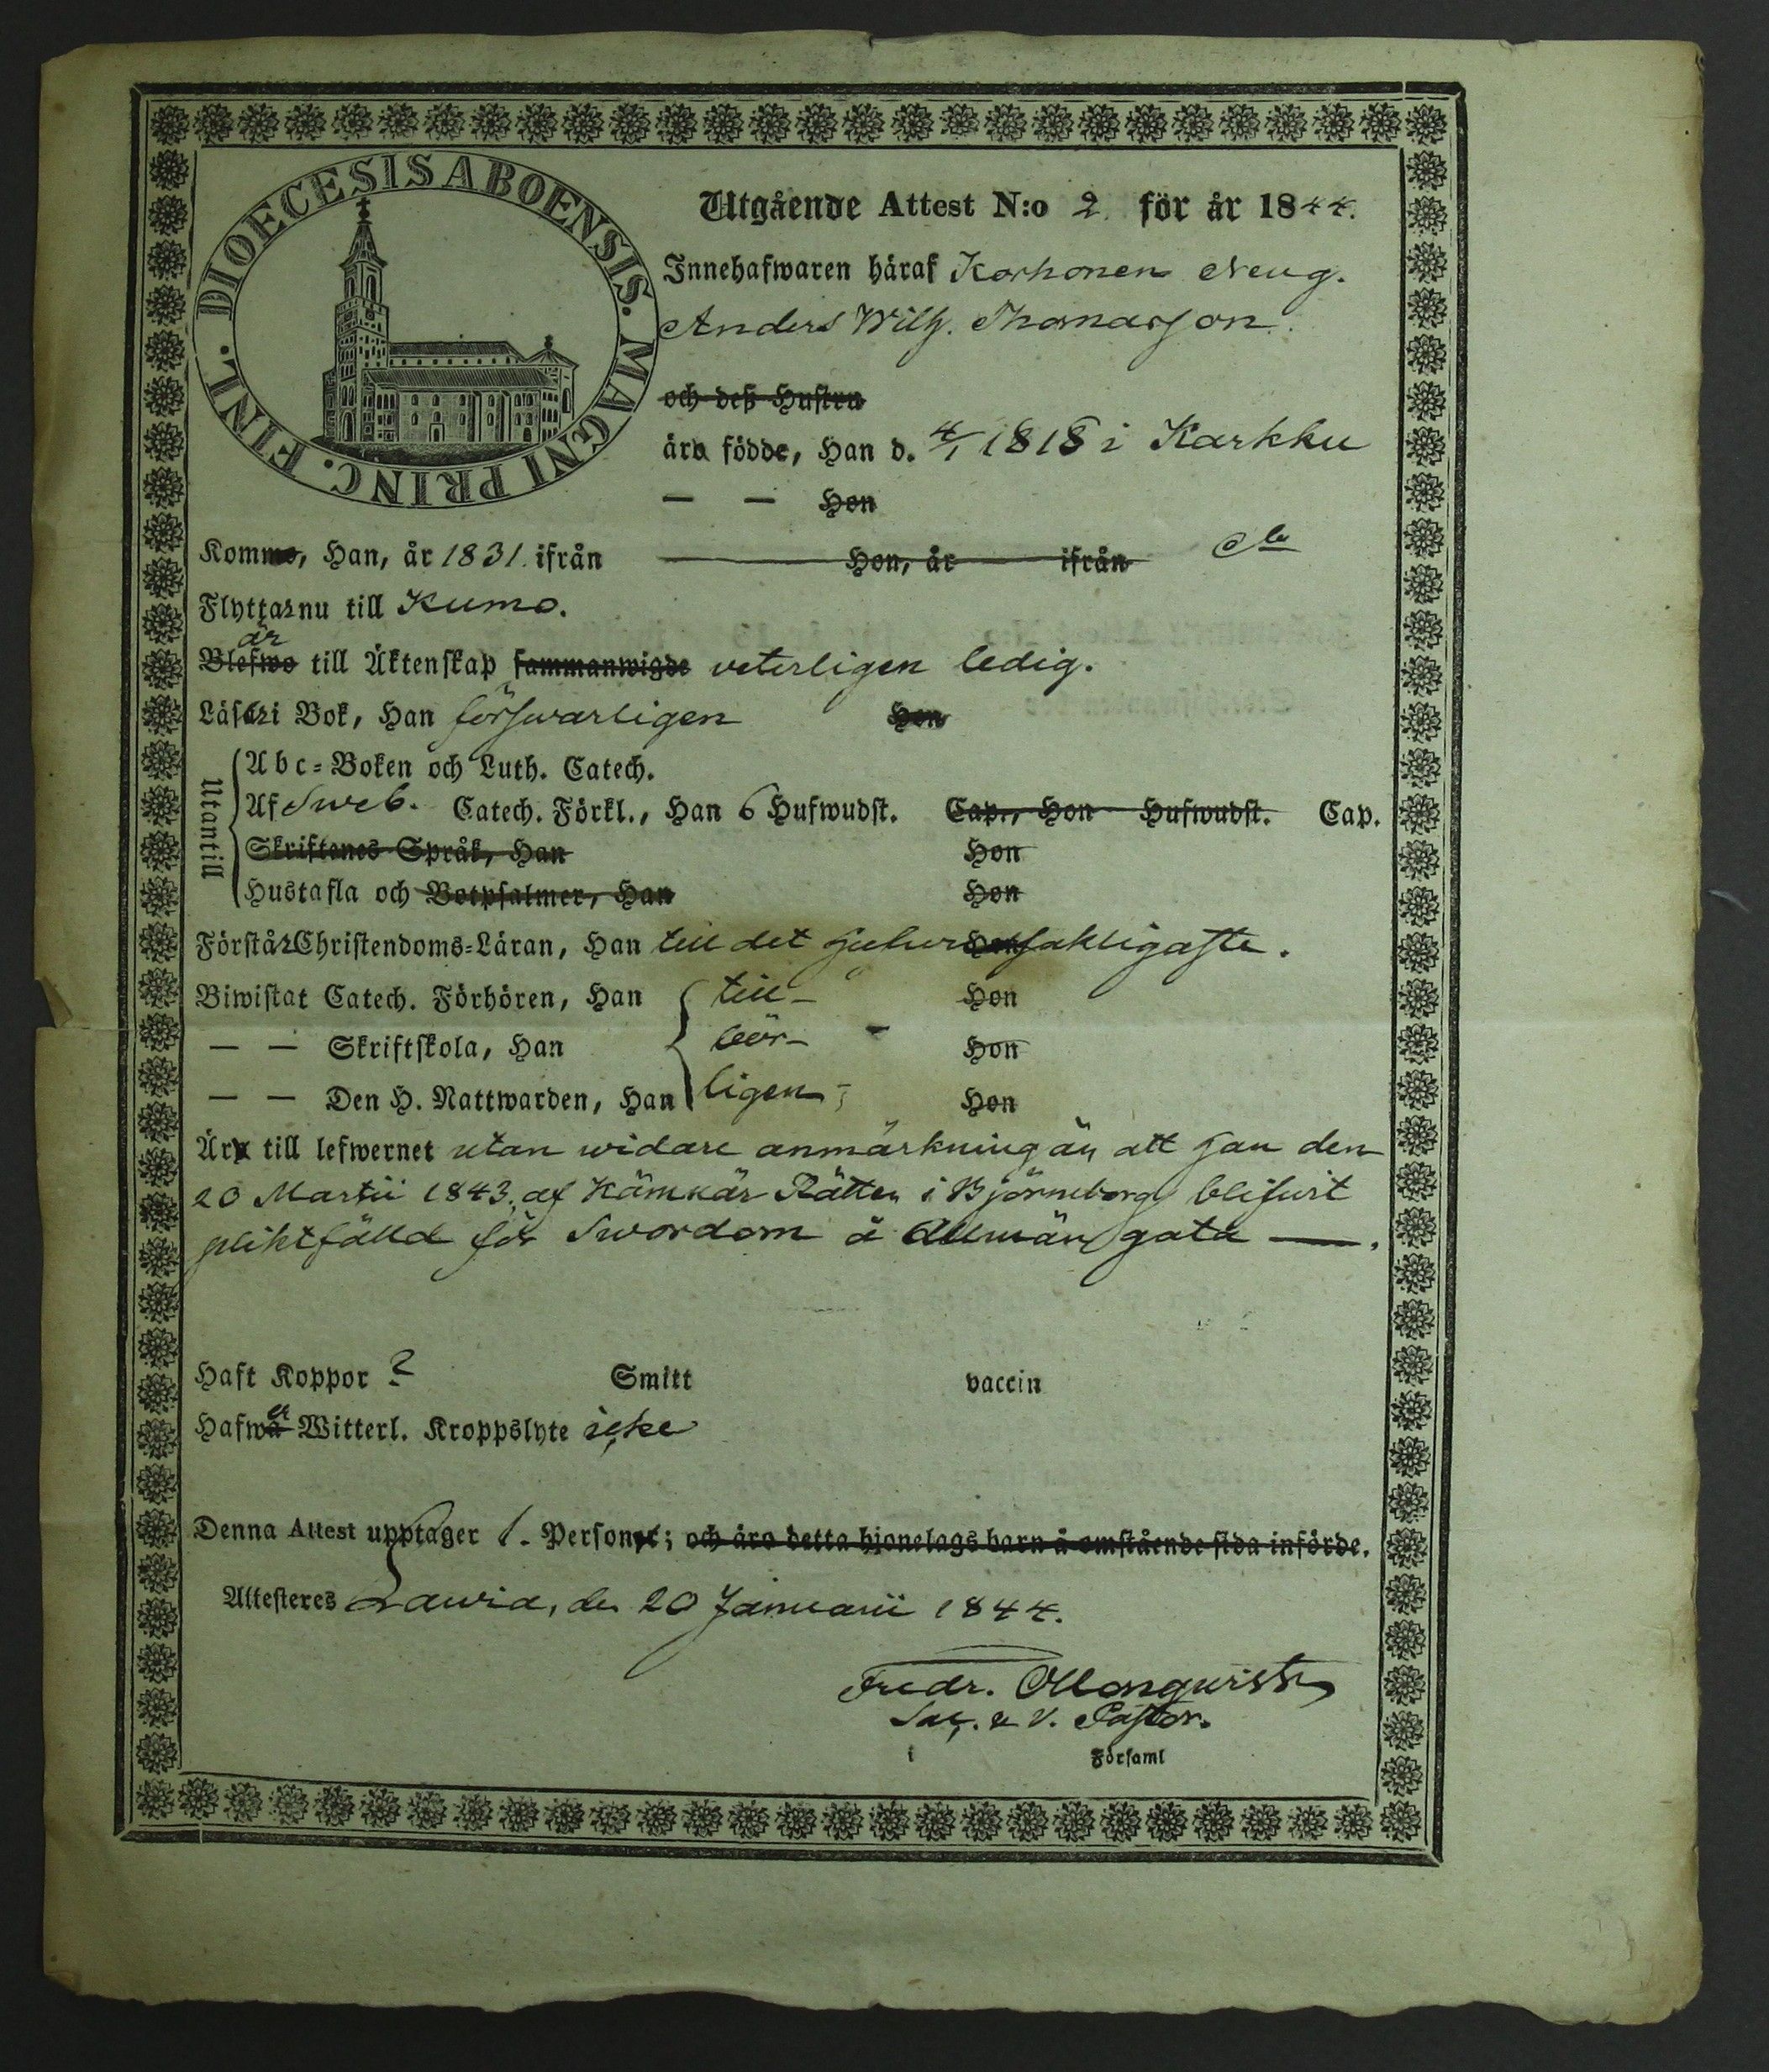 DIOECESIS ABOENSIS. MAGNI PRINC. FINL.
Utgående Attest N:o 2. för år 1844.
Innehafwaren häraf Korhonen Neug.
Anders Wilh. Thomasson.
och deß Hustru
äro födde, Han d. 4/1 1818 i Karkku
— — Hon
Kommo, Han, år 1831. ifrån Hon, år ifrån
Flyttar nu till Kumo.
är
Blefwo till Äktenskap sammanwigde veterligen ledig.
Läser i Bok, Han förswarligen Hon
Utantill
Abc-Boken och Luth. Catech.
Af Sweb. Catech. Förkl., Han 6 Hufwudst. Cap., Hon Hufwudst. Cap.
Skriftenes Språk, Han Hon
Hustafla och Botpsalmer, Han Hon
Förstår Christendoms-Läran, Han till det hufwudsakligaste. Hon
Biwistat Catech. Förhören, Han till- Hon
— — Skriftskola, Han bör- Hon
— — Den H. Nattwarden, Han ligen; Hon
Äro till lefwernet utan widare anmärkning än att han den
20 Martii 1843. af Kämnärs Rätten i Björneborg blifwit
pliktfälld för Swordom å allmän gata —.
Haft Koppor ? Smitt vaccin
Hafwa er Witterl. Kroppslyte icke
Denna Attest upptager 1. Personer; och äro detta hjonelags barn å omstående sida införde.
Attesteres Lawia, den 20 Januarii 1844.
Fredr. Ollonqwist
Sac. & V. Pastor.
i Församl